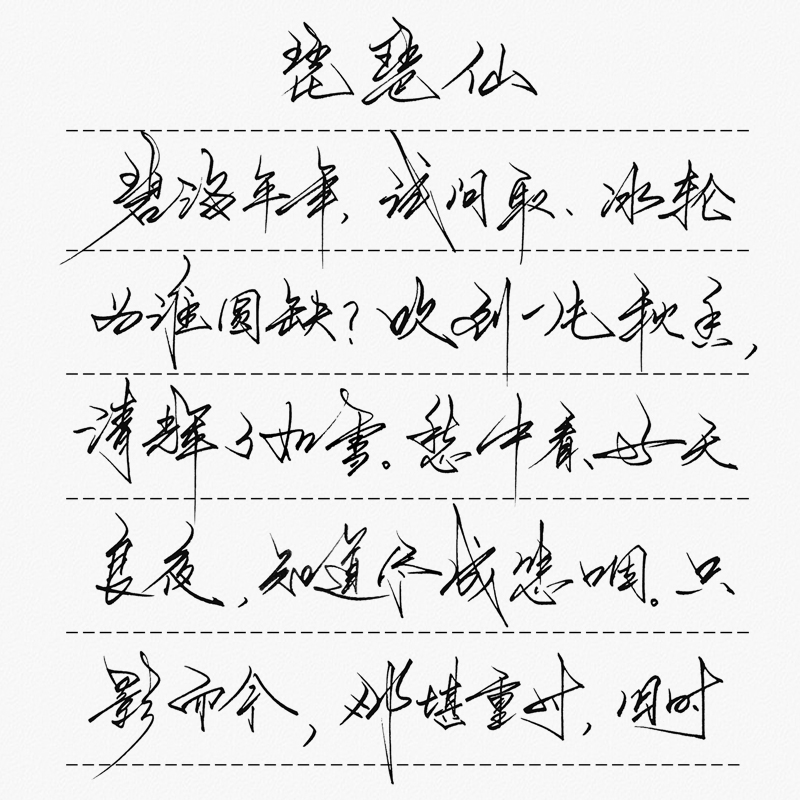 琵琶仙
碧海年年，试问取、冰轮
为谁圆缺？吹到一片秋香，
清辉了如雪。愁中看、好天
良夜，知道尽成悲咽。只
影而今，那堪重对，旧时